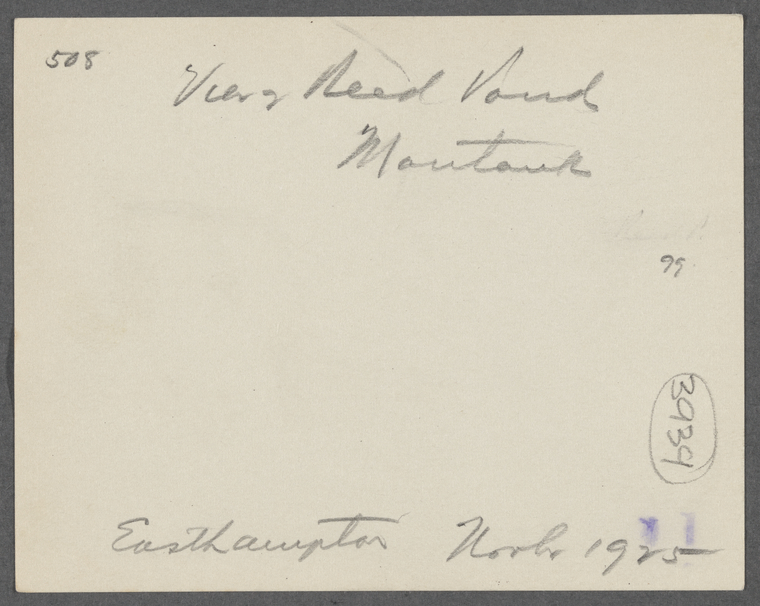 508
View Reed Pond
Montauk
99
3939
Easthampton Novbr 1925